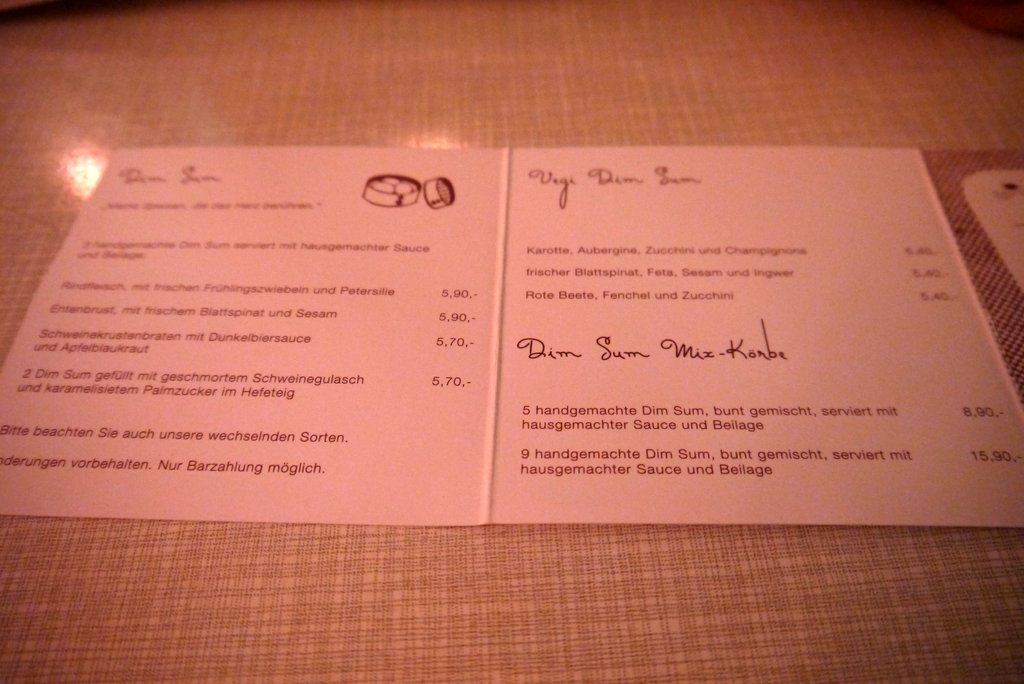 Dim Sum
„kleine Speisen, die das Herz berühren."
3 handgemachte Dim Sum serviert mit hausgemachter Sauce
und Beilage:
Rindfleisch, mit frischen Frühlingszwiebeln und Petersilie 5,90,-
Entenbrust, mit frischem Blattspinat und Sesam 5,90,-
Schweinekrustenbraten mit Dunkelbiersauce 5,70,-
und Apfelblaukraut
2 Dim Sum gefüllt mit geschmortem Schweinegulasch 5,70,-
und karamelisietem Palmzucker im Hefeteig
Bitte beachten Sie auch unsere wechselnden Sorten.
nderungen vorbehalten. Nur Barzahlung möglich.
Vegi Dim Sum
Karotte, Aubergine, Zucchini und Champignons 5,40,-
frischer Blattspinat, Feta, Sesam und Ingwer 5,40,-
Rote Beete, Fenchel und Zucchini 5,40,-
Dim Sum Mix-Körbe
5 handgemachte Dim Sum, bunt gemischt, serviert mit 8,90,-
hausgemachter Sauce und Beilage
9 handgemachte Dim Sum, bunt gemischt, serviert mit 15,90,-
hausgemachter Sauce und Beilage